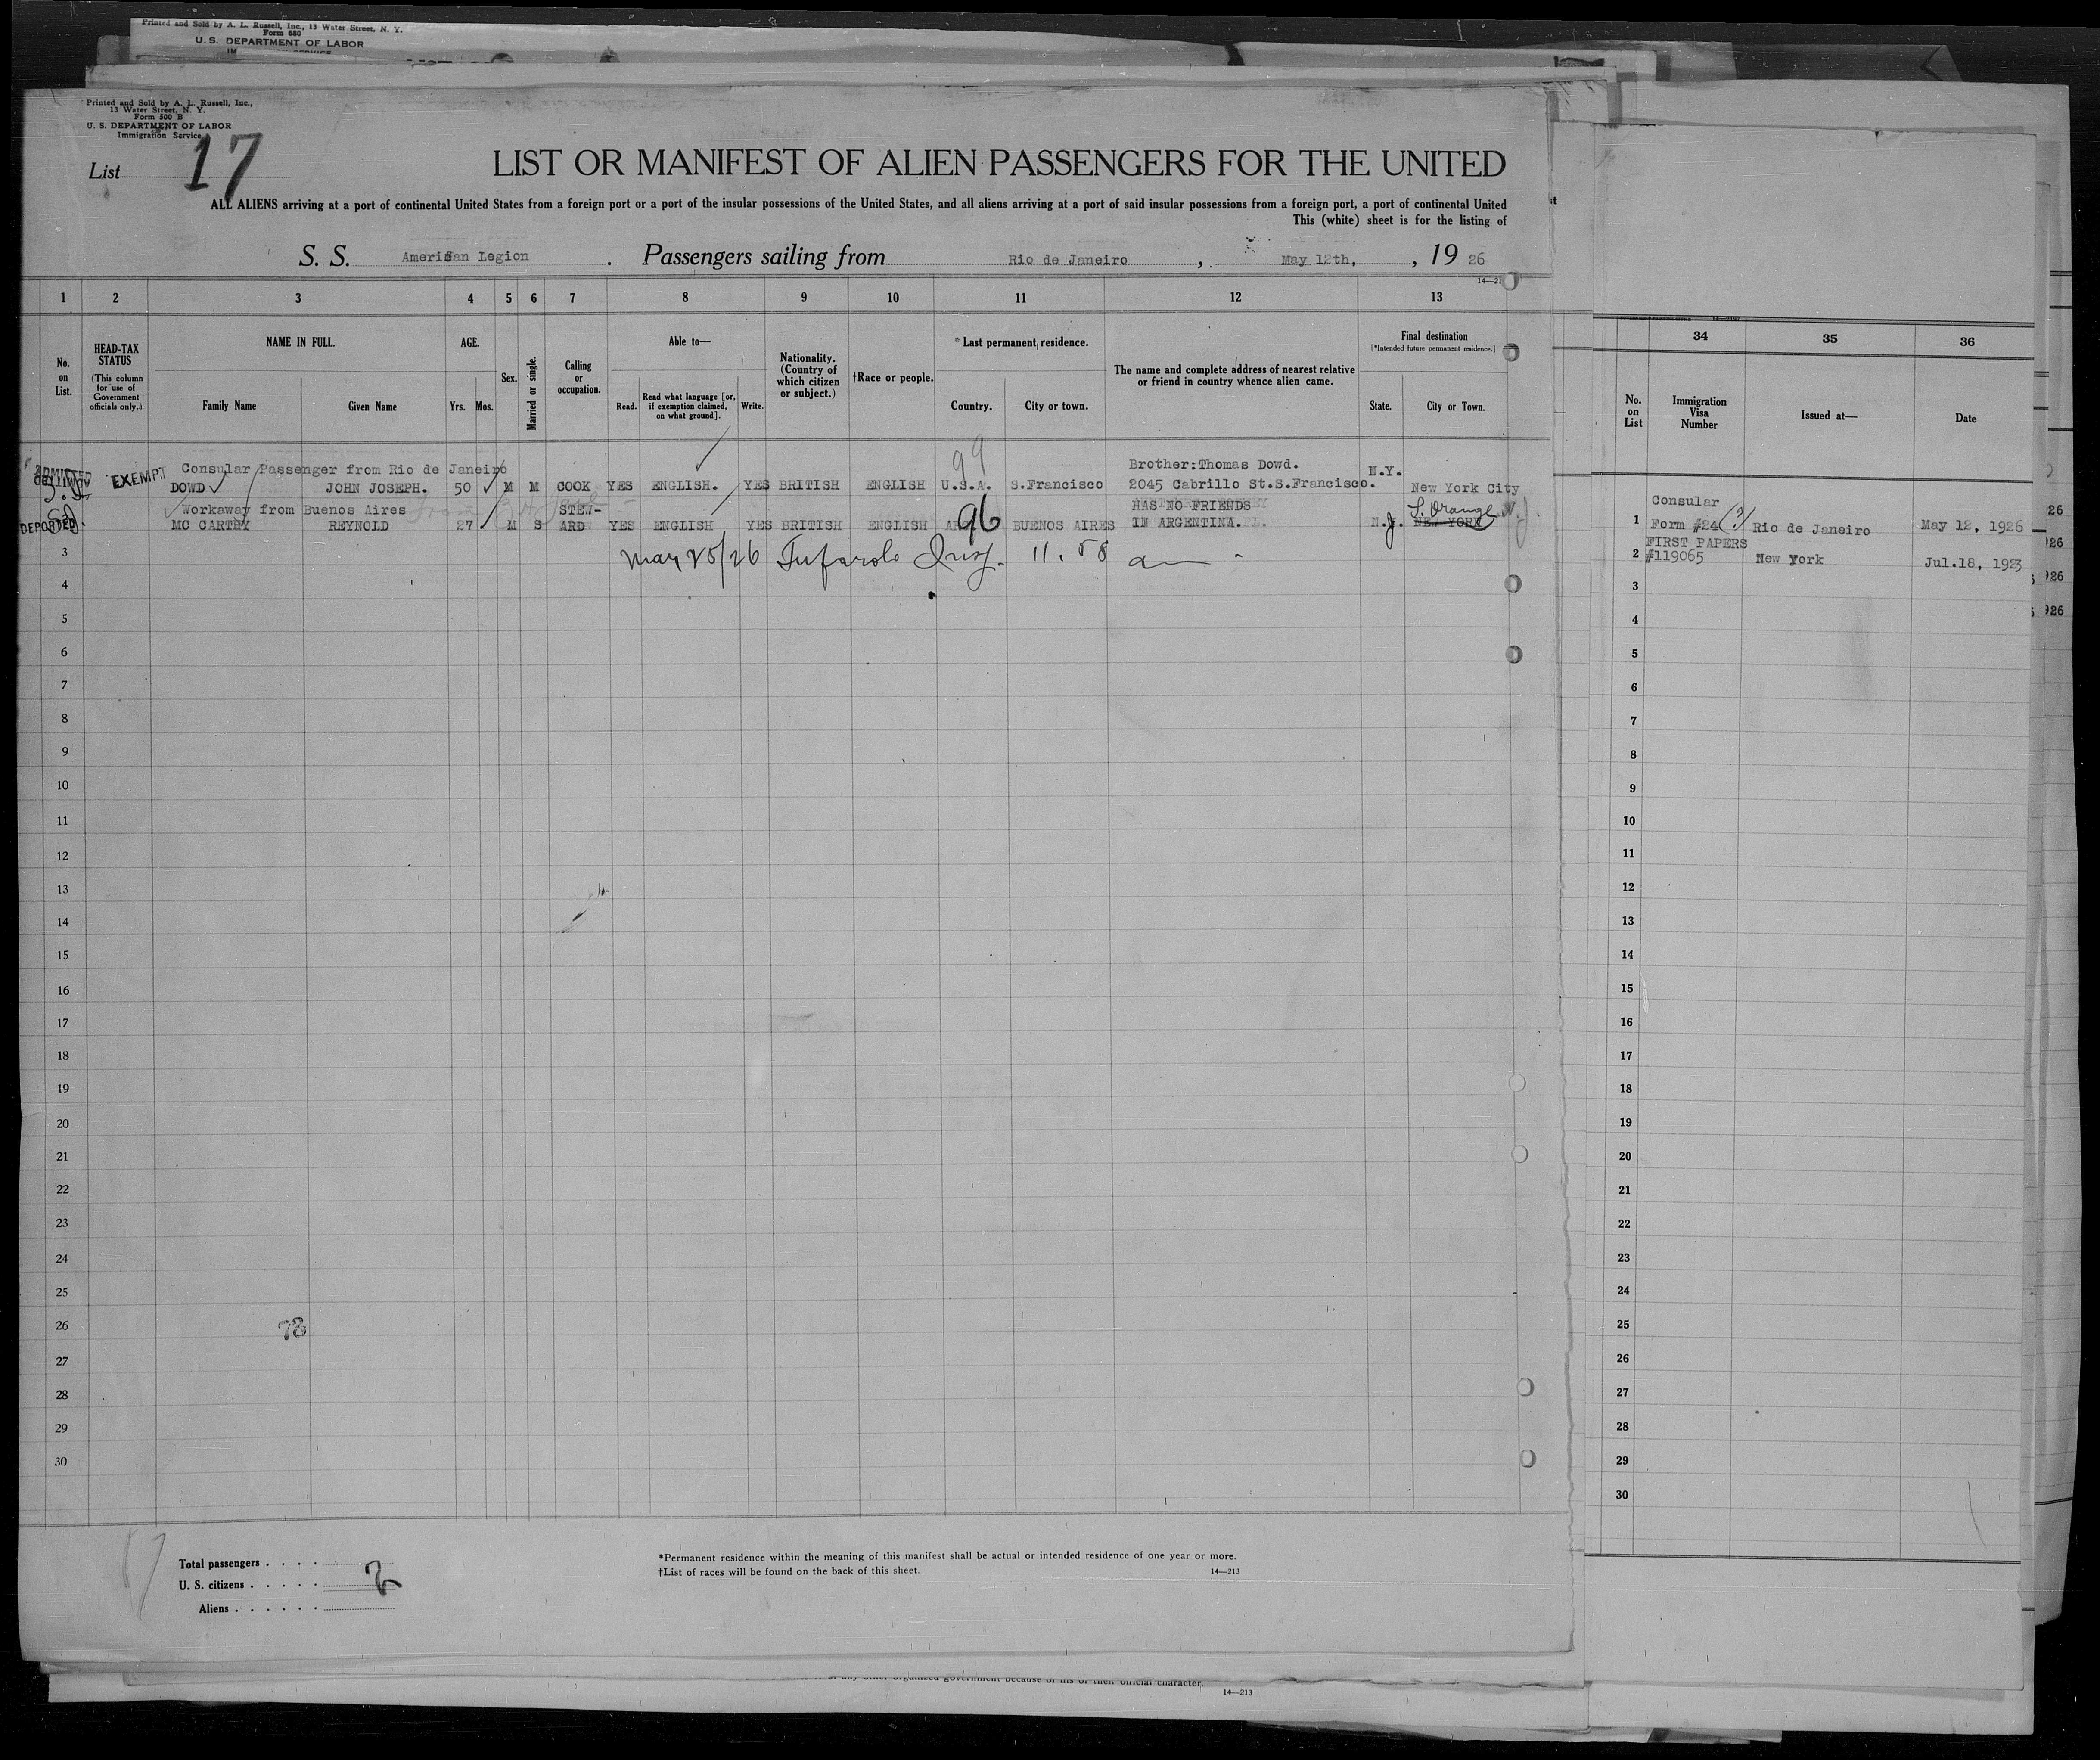 Printed and Sold by A. L. Russell, Inc., 13 Water Street, N. Y.
Form 680
U. S. DEPARTMENT OF LABOR
Printed and Sold by A. L. Russell, Inc.,
13 Water Street, N. Y.
Form 500 B
U. S. DEPARTMENT OF LABOR
Immigration Service
List 17
LIST OR MANIFEST OF ALIEN PASSENGERS FOR THE UNITED
ALL ALIENS arriving at a port of continental United States from a foreign port or a port of the insular possessions of the United States, and all aliens arriving at a port of said insular possessions from a foreign port, a port of continental United
This (white) sheet is for the listing of
S. S. American Legion . Passengers sailing from Rio de Janeiro , May 12th, , 19 26
14—21
1 2 3 4 5 6 7 8 9 10 11 12 13
No. on List.
HEAD-TAX STATUS
(This column for use of Government officials only.)
NAME IN FULL.
Family Name
Given Name
AGE.
Yrs. Mos.
Sex.
Married or single.
Calling or occupation.
Able to—
Read.
Read what language [or, if exemption claimed, on what ground].
Write.
Nationality. (Country of which citizen or subject.)
†Race or people.
* Last permanent residence.
Country.
City or town.
The name and complete address of nearest relative or friend in country whence alien came.
Final destination
[*Intended future permanent residence.]
State.
City or Town.
34 35 36
No. on List
Immigration Visa Number
Issued at—
Date
ADMITTED
EXEMPT
Consular Passenger from Rio de Janeiro 99 Brother:Thomas Dowd. N.Y.
DOWD JOHN JOSEPH. 50 M M COOK YES ENGLISH. YES BRITISH ENGLISH U.S.A. S.Francisco 2045 Cabrillo St.S.Francisco. New York City
Workaway from Buenos Aires STEW- HAS NO FRIENDS S. Orange N.J.
DEPORTED MC CARTHY REYNOLD 27 M S ARD YES ENGLISH YES BRITISH ENGLISH 96 BUENOS AIRES IN ARGENTINA. N.J. NEW YORK
May 25/26 Insp. 11.58 am
3
4
5
6
7
8
9
10
11
12
13
14
15
16
17
18
19
20
21
22
23
24
25
26
78
27
28
29
30
Consular
1 Form #24 (3) Rio de Janeiro May 12, 1926
FIRST PAPERS
2 #119065 New York Jul.18, 1923
3
4
5
6
7
8
9
10
11
12
13
14
15
16
17
18
19
20
21
22
23
24
25
26
27
28
29
30
926
926
926
926
17
Total passengers . . . .
U. S. citizens . . . . . 2
Aliens . . . . . .
*Permanent residence within the meaning of this manifest shall be actual or intended residence of one year or more.
†List of races will be found on the back of this sheet.
14—213
organized government because of his or their official character.
14—213